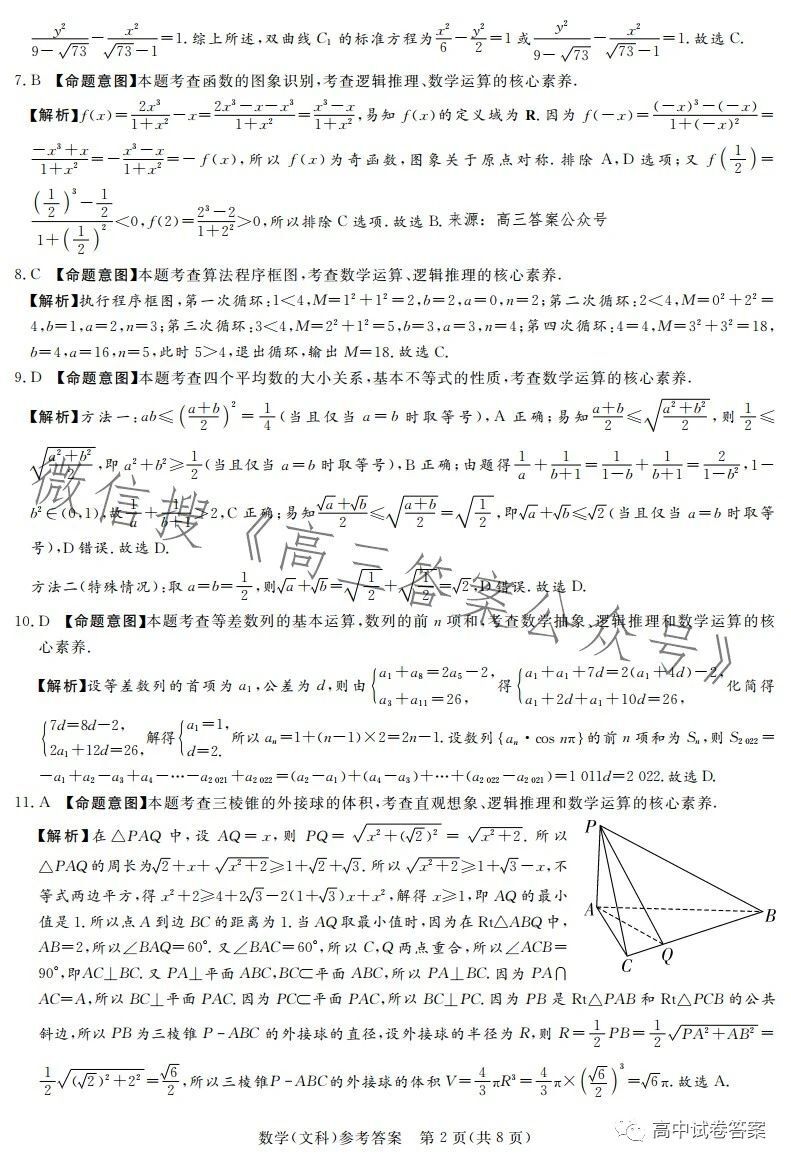 y²/(9-√73) - x²/(√73-1) =1.综上所述,双曲线 C₁ 的标准方程为 x²/6 - y²/2 =1 或 y²/(9-√73) - x²/(√73-1) =1.故选 C.
7. B 【命题意图】本题考查函数的图象识别,考查逻辑推理、数学运算的核心素养.
【解析】f(x)= 2x³/(1+x²) -x= (2x³-x-x³)/(1+x²) = (x³-x)/(1+x²) ,易知 f(x)的定义域为 R.因为 f(-x)= ((-x)³-(-x))/(1+(-x)²) =
(-x³+x)/(1+x²) =- (x³-x)/(1+x²) =-f(x),所以 f(x)为奇函数,图象关于原点对称.排除 A,D 选项;又 f(1/2)=
((1/2)³-1/2)/(1+(1/2)²) <0,f(2)= (2³-2)/(1+2²) >0,所以排除 C 选项.故选 B. 来源:高三答案公众号
8. C 【命题意图】本题考查算法程序框图,考查数学运算、逻辑推理的核心素养.
【解析】执行程序框图,第一次循环:1<4,M=1²+1²=2,b=2,a=0,n=2;第二次循环:2<4,M=0²+2²=
4,b=1,a=2,n=3;第三次循环:3<4,M=2²+1²=5,b=3,a=3,n=4;第四次循环:4=4,M=3²+3²=18,
b=4,a=16,n=5,此时 5>4,退出循环,输出 M=18.故选 C.
9. D 【命题意图】本题考查四个平均数的大小关系,基本不等式的性质,考查数学运算的核心素养.
【解析】方法一:ab≤((a+b)/2)²=1/4(当且仅当 a=b 时取等号),A 正确;易知 (a+b)/2 ≤ √((a²+b²)/2) ,则 1/2 ≤
√((a²+b²)/2) ,即 a²+b²≥1/2(当且仅当 a=b 时取等号),B 正确;由题得 1/a + 1/(b+1) = 1/(1-b) + 1/(b+1) = 2/(1-b²) ,1-
b²∈(0,1),故 1/a + 1/(b+1) >2,C 正确;易知 (√a+√b)/2 ≤ √((a+b)/2) = √(1/2) ,即√a+√b≤√2(当且仅当 a=b 时取等
号),D 错误.故选 D.
方法二(特殊情况):取 a=b=1/2,则√a+√b=√(1/2)+√(1/2)=√2,D 错误.故选 D.
10. D 【命题意图】本题考查等差数列的基本运算,数列的前 n 项和,考查数学抽象、逻辑推理和数学运算的核
心素养.
【解析】设等差数列的首项为 a₁,公差为 d,则由 {a₁+a₈=2a₅-2, a₃+a₁₁=26, 得 {a₁+a₁+7d=2(a₁+4d)-2, a₁+2d+a₁+10d=26, 化简得
{7d=8d-2, 2a₁+12d=26, 解得 {a₁=1, d=2. 所以 aₙ=1+(n-1)×2=2n-1.设数列{aₙ·cos nπ}的前 n 项和为 Sₙ,则 S₂ ₀₂₂=
-a₁+a₂-a₃+a₄-…-a₂ ₀₂₁+a₂ ₀₂₂=(a₂-a₁)+(a₄-a₃)+…+(a₂ ₀₂₂-a₂ ₀₂₁)=1 011d=2 022.故选 D.
11. A 【命题意图】本题考查三棱锥的外接球的体积,考查直观想象、逻辑推理和数学运算的核心素养.
【解析】在△PAQ 中,设 AQ=x,则 PQ= √(x²+(√2)²) = √(x²+2).所以
△PAQ 的周长为√2+x+√(x²+2)≥1+√2+√3.所以 √(x²+2)≥1+√3-x,不
等式两边平方,得 x²+2≥4+2√3-2(1+√3)x+x²,解得 x≥1,即 AQ 的最小
值是 1.所以点 A 到边 BC 的距离为 1.当 AQ 取最小值时,因为在 Rt△ABQ 中,
AB=2,所以∠BAQ=60°.又∠BAC=60°,所以 C,Q 两点重合,所以∠ACB=
90°,即AC⊥BC.又 PA⊥平面 ABC,BC⊂平面 ABC,所以 PA⊥BC.因为 PA∩
AC=A,所以 BC⊥平面 PAC.因为 PC⊂平面 PAC,所以 BC⊥PC.因为 PB 是 Rt△PAB 和 Rt△PCB 的公共
斜边,所以 PB 为三棱锥 P-ABC 的外接球的直径,设外接球的半径为 R,则 R=1/2 PB=1/2 √(PA²+AB²) =
1/2 √((√2)²+2²) = √6/2 ,所以三棱锥P-ABC的外接球的体积 V=4/3 πR³=4/3 π×(√6/2)³=√6π.故选 A.
P
A
B
C
Q
微信搜《高三答案公众号》
数学(文科)参考答案 第 2 页(共 8 页)
高中试卷答案